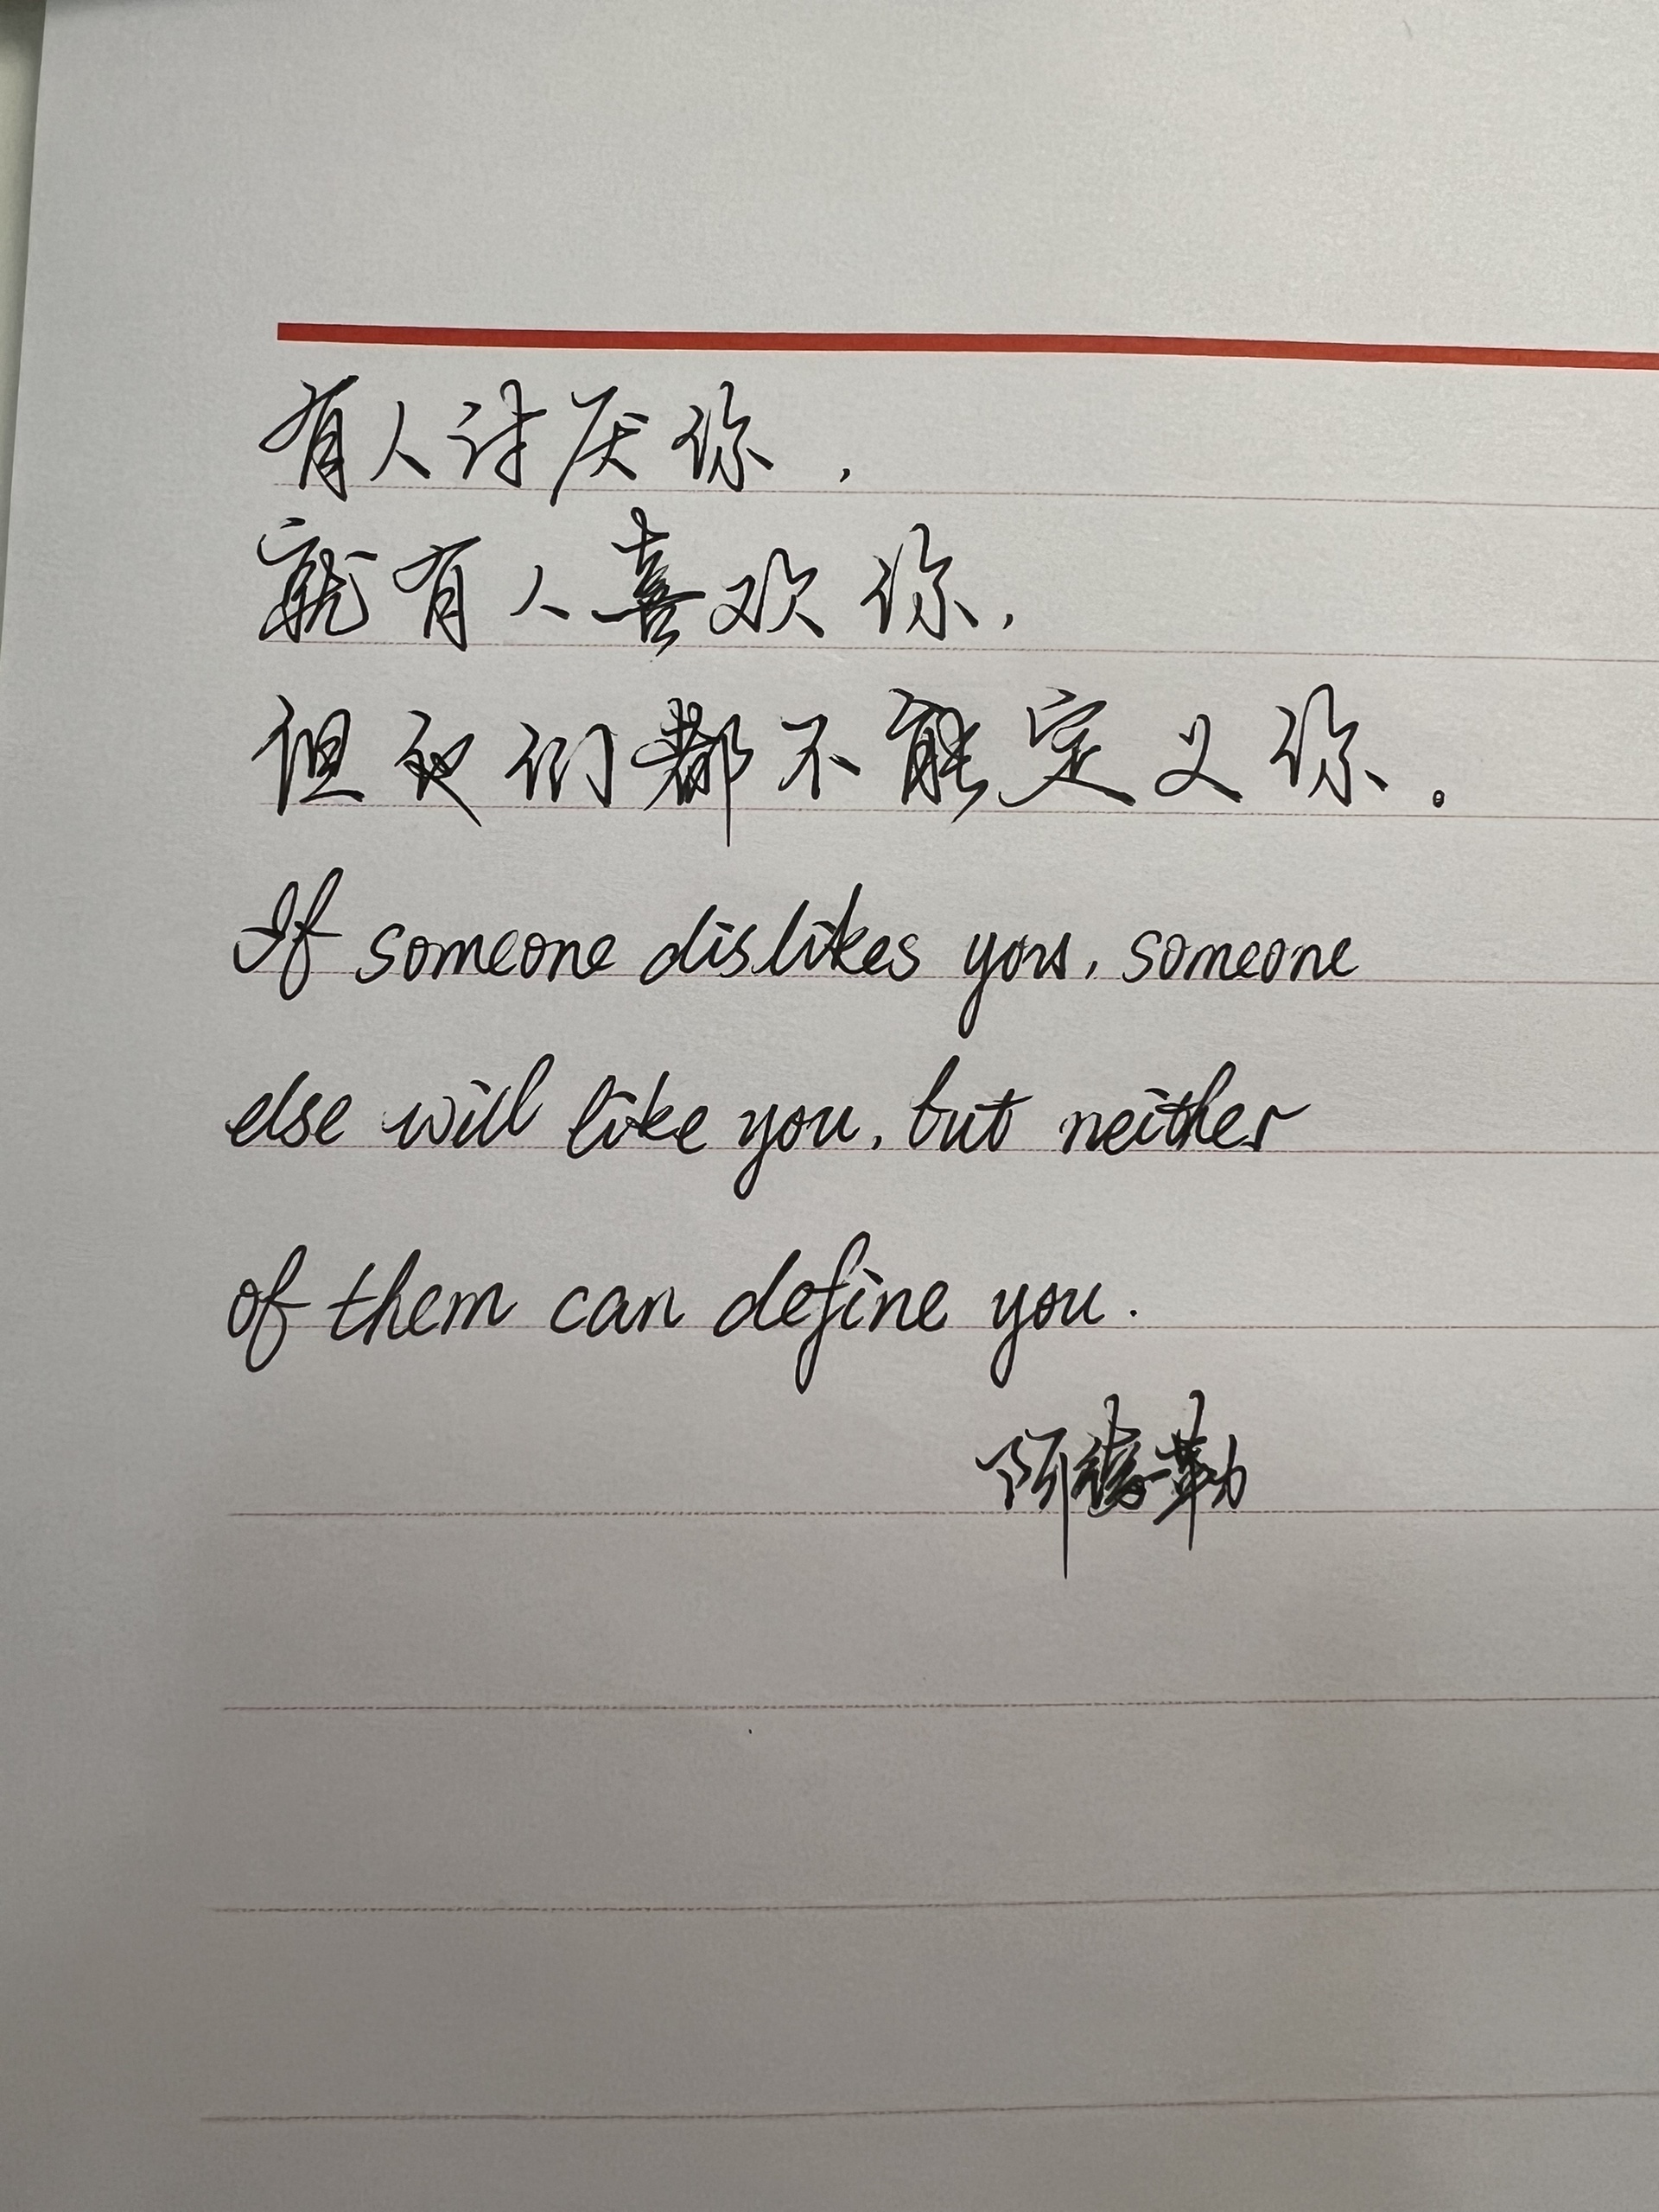 有人讨厌你，
就有人喜欢你，
但他们都不能定义你。
If someone dislikes you, someone
else will like you, but neither
of them can define you.
阿德勒